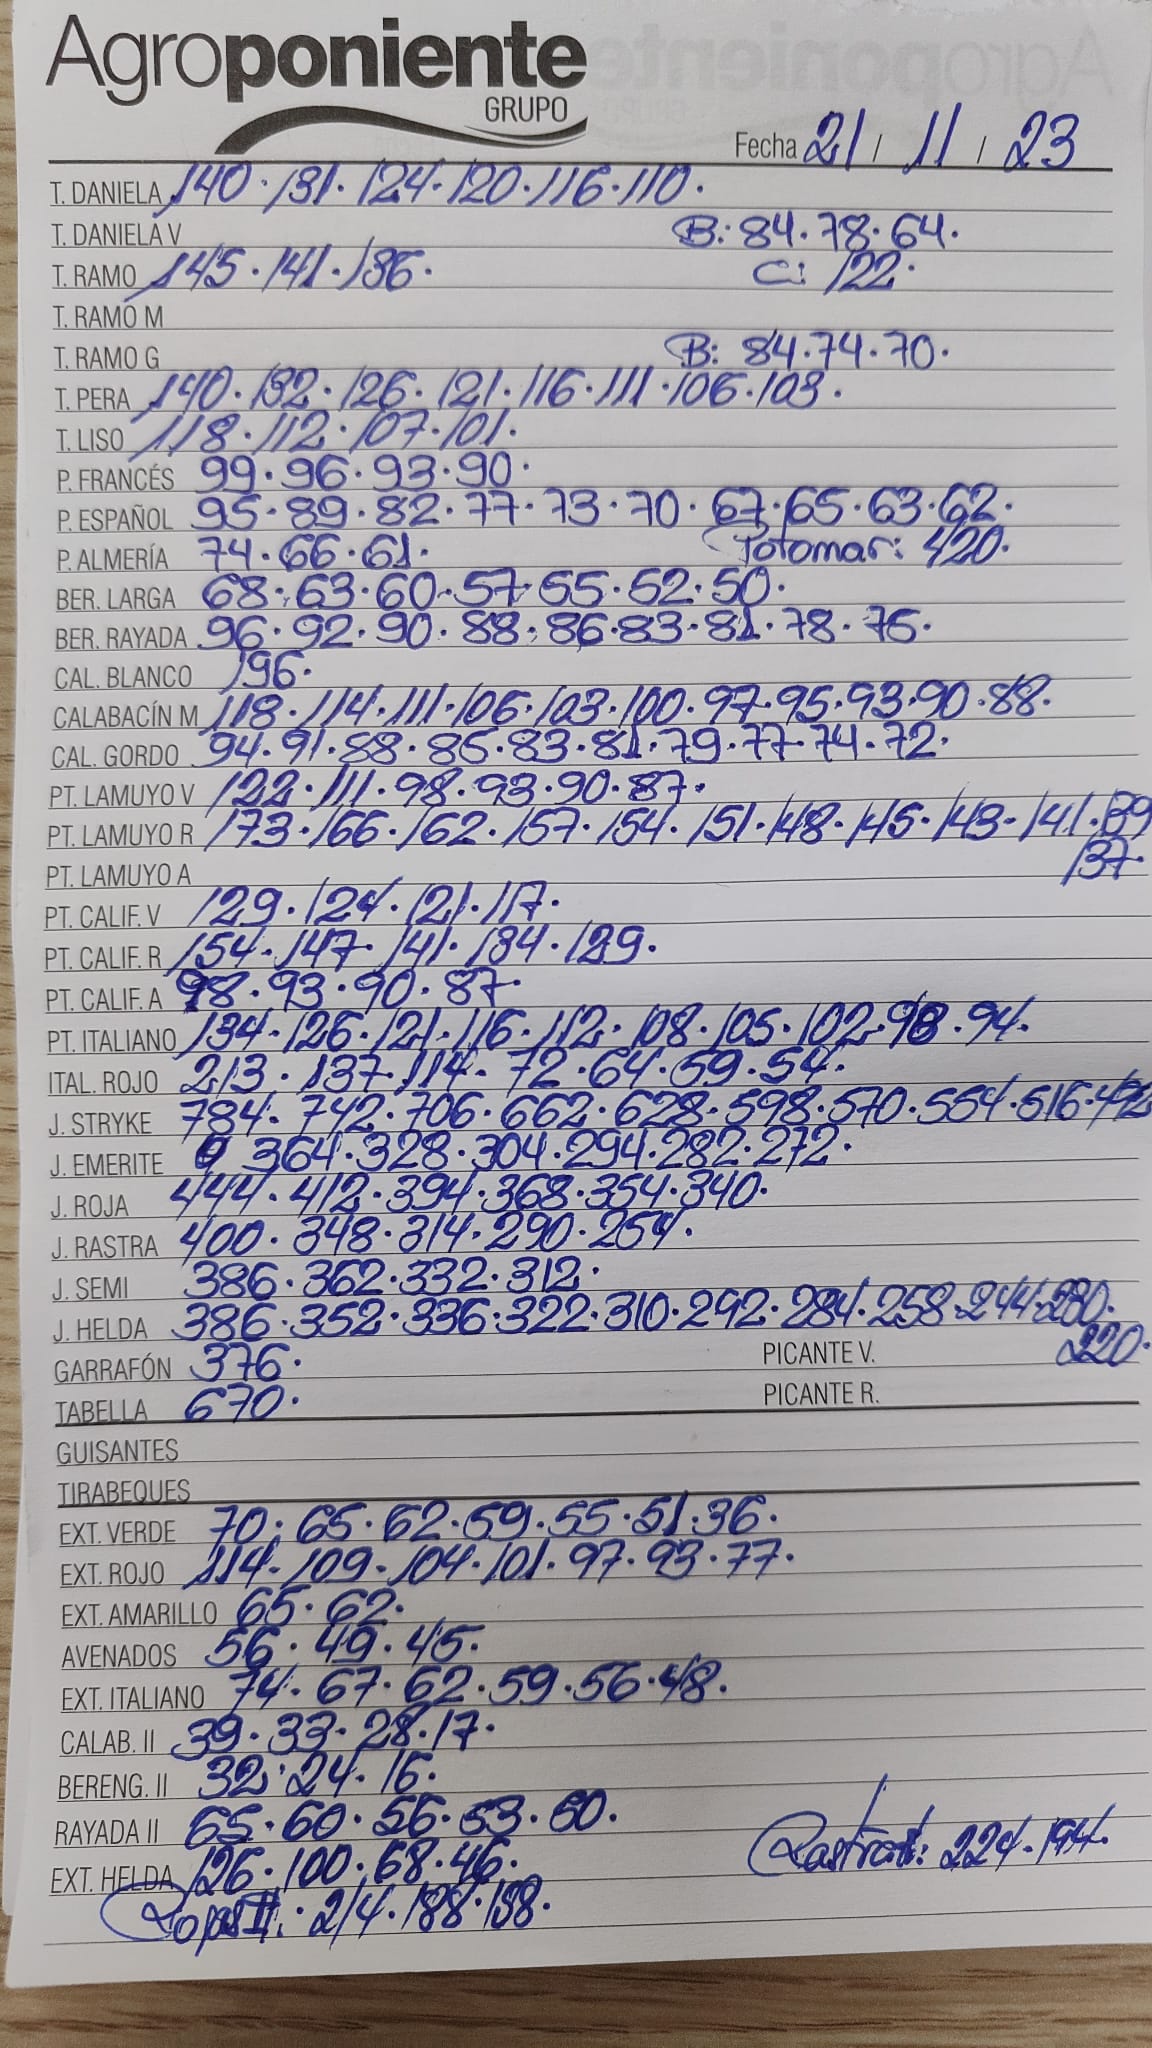 Agroponiente
GRUPO
Fecha 21 / 11 / 23
T. DANIELA 140 · 131 · 124 · 120 · 116 · 110 ·
T. DANIELA V B: 84 · 78 · 64 ·
T. RAMO 145 · 141 · 136 · C: 122 ·
T. RAMO M
T. RAMO G B: 84 · 74 · 70 ·
T. PERA 140 · 132 · 126 · 121 · 116 · 111 · 106 · 103 ·
T. LISO 118 · 112 · 107 · 101 ·
P. FRANCÉS 99 · 96 · 93 · 90 ·
P. ESPAÑOL 95 · 89 · 82 · 77 · 73 · 70 · 67 · 65 · 63 · 62 ·
P. ALMERÍA 74 · 66 · 61 · Potomar: 420 ·
BER. LARGA 68 · 63 · 60 · 57 · 55 · 52 · 50 ·
BER. RAYADA 96 · 92 · 90 · 88 · 86 · 83 · 81 · 78 · 75 ·
CAL. BLANCO 196 ·
CALABACÍN M 118 · 114 · 111 · 106 · 103 · 100 · 97 · 95 · 93 · 90 · 88 ·
CAL. GORDO 94 · 91 · 88 · 85 · 83 · 81 · 79 · 77 · 74 · 72 ·
PT. LAMUYO V 122 · 111 · 98 · 93 · 90 · 87 ·
PT. LAMUYO R 173 · 166 · 162 · 157 · 154 · 151 · 148 · 145 · 143 · 141 · 139
137 ·
PT. LAMUYO A
PT. CALIF. V 129 · 124 · 121 · 117 ·
PT. CALIF. R 154 · 147 · 141 · 134 · 129 ·
PT. CALIF. A 98 · 93 · 90 · 87 ·
PT. ITALIANO 134 · 126 · 121 · 116 · 112 · 108 · 105 · 102 · 98 · 94 ·
ITAL. ROJO 213 · 137 · 114 · 72 · 64 · 59 · 54 ·
J. STRYKE 784 · 742 · 706 · 662 · 628 · 598 · 570 · 554 · 516 · 492
J. EMERITE 364 · 328 · 304 · 294 · 282 · 272 ·
J. ROJA 444 · 412 · 394 · 368 · 354 · 340 ·
J. RASTRA 400 · 348 · 314 · 290 · 254 ·
J. SEMI 386 · 362 · 332 · 312 ·
J. HELDA 386 · 352 · 336 · 322 · 310 · 292 · 284 · 258 · 244 · 230 ·
220 ·
GARRAFÓN 376 · PICANTE V.
TABELLA 670 · PICANTE R.
GUISANTES
TIRABEQUES
EXT. VERDE 70 · 65 · 62 · 59 · 55 · 51 · 36 ·
EXT. ROJO 114 · 109 · 104 · 101 · 97 · 93 · 77 ·
EXT. AMARILLO 65 · 62 ·
AVENADOS 56 · 49 · 45 ·
EXT. ITALIANO 74 · 67 · 62 · 59 · 56 · 48 ·
CALAB. II 39 · 33 · 28 · 17 ·
BERENG. II 32 · 24 · 16 ·
RAYADA II 65 · 60 · 56 · 53 · 50 ·
EXT. HELDA 126 · 100 · 68 · 46 · 224 · 194 ·
II: 214 · 188 · 158 ·